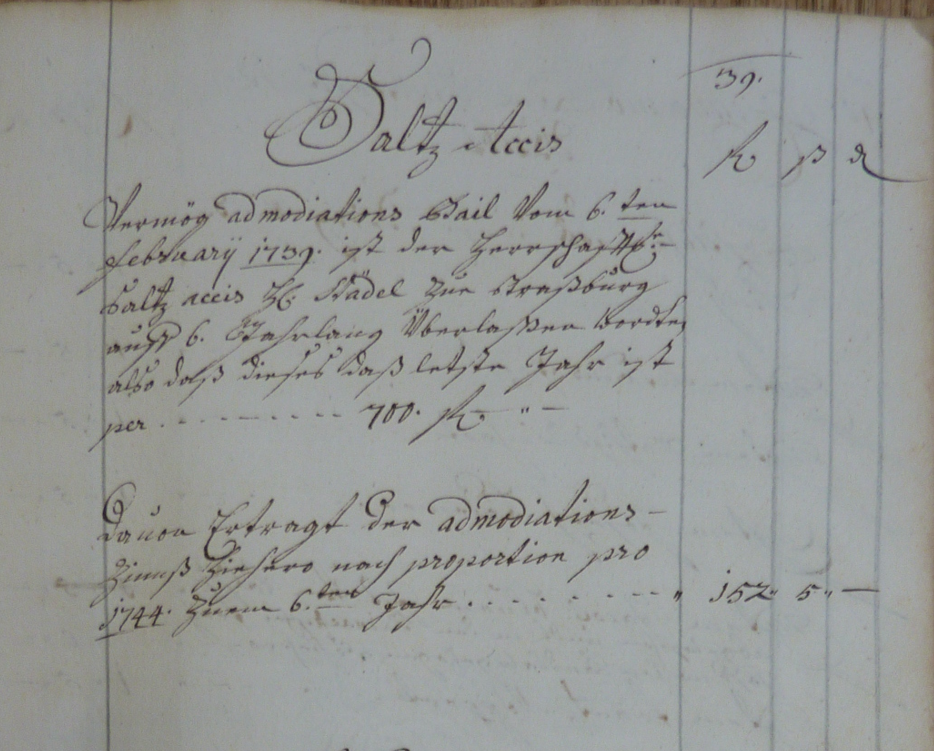 39.
Saltz Accis
fl ß d
Vermög admodiations Bail Vom 6.ten
february 1739. ist der Herrschafftl:
Saltz accis H: Städel Zue Straßburg
auff 6. Jahrlang Überlaßen wordten
also daß dieses daß letste Jahr ist
per - - - - - - - - - 700. fl. " -
Dauon Ertragt der admodiations-
Zinnß hiehero nach proportion pro
1744. Zuem 6.ten Jahr . . . . . . . - - " 152" 5" -